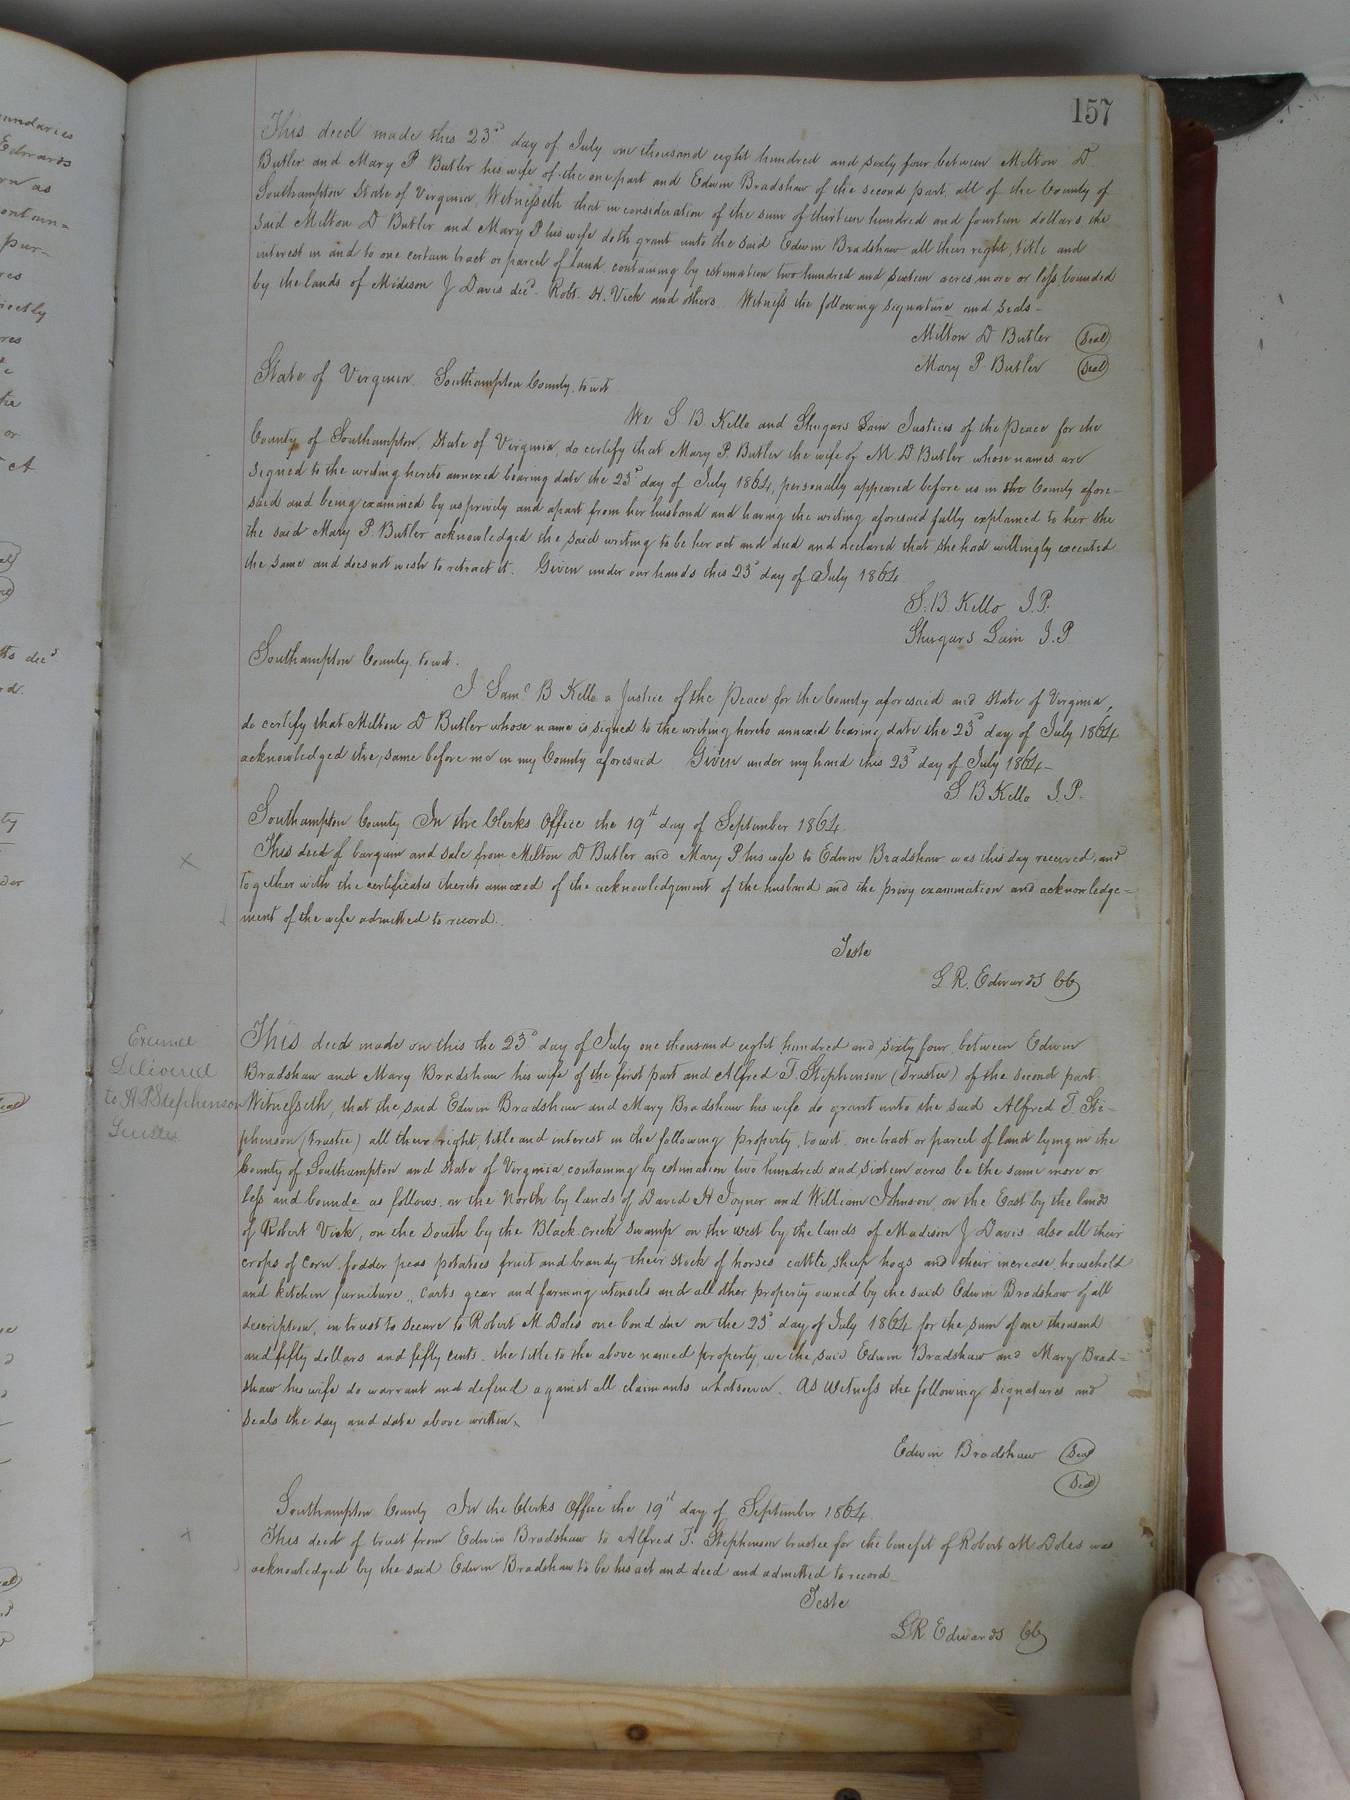 157
This deed made this 23d day of July one thousand eight hundred and sixty four between Milton D.
Butler and Mary P Butler his wife of the one part and Edwin Bradshaw of the second part, all of the County of
Southampton State of Virginia, Witnesseth that in consideration of the sum of thirteen hundred and fourteen dollars the
said Milton D Butler and Mary P his wife doth grant unto the said Edwin Bradshaw all their right, title and
interest in and to one certain tract or parcel of land, containing by estimation two hundred and sixteen acres more or less, bounded
by the lands of Midison J Davis decd. Robt. H. Vick and others. Witness the following signature and seals -
Milton D Butler (Seal)
Mary P. Butler (Seal)
State of Virginia. Southampton County, to wit
We S B. Kello and Shugars Lain Justices of the Peace for the
County of Southampton, State of Virginia, do certify that Mary P. Butler the wife of M. D Butler whose names are
signed to the writing hereto annexed bearing date the 23d day of July 1864, personally appeared before us in the County afore-
said and being examined by us privily and apart from her husband and having the writing aforesaid fully explained to her she
the said Mary P. Butler acknowledged the said writing to be her act and deed and declared that she had willingly executed
the same and does not wish to retract it. Given under our hands this 23d day of July 1864
S. B. Kello J.P.
Shugars Lain J.P
Southampton County, to wit.
I Saml B Kello a Justice of the Peace for the County aforesaid and State of Virginia,
do certify that Milton D Butler whose name is signed to the writing hereto annexed bearing date the 23d day of July 1864
acknowledged the same before me in my County aforesaid Given under my hand this 23d day of July 1864-
S B Kello J.P.
Southampton County In the Clerks Office the 19th day of September 1864
x This deed of bargain and sale from Milton D Butler and Mary P his wife to Edwin Bradshaw was this day received, and
together with the certificates thereto annexed of the acknowledgement of the husband and the privy examination and acknowledge=
ment of the wife admitted to record.
Teste
L R. Edwards CC
Examd
Delivered
to A P Stephenson
Trustee
This deed made on this the 23d day of July one thousand eight hundred and sixty four, between Edwin
Bradshaw and Mary Bradshaw his wife of the first part and Alfred T. Stephenson (Trustee) of the second part.
Witnesseth, that the said Edwin Bradshaw and Mary Bradshaw his wife do grant unto the said Alfred T. Ste-
phenson (trustee) all their right, title and interest in the following property, to wit. one tract or parcel of land lying in the
County of Southampton and State of Virginia, containing by estimation two hundred and sixteen acres be the same more or
less and bounde as follows. on the North by lands of David H Joyner and William Johnson, on the East by the lands
of Robert Vick, on the South by the Black creek swamp on the west by the lands of Madison J Davis also all their
crops of corn fodder peas potatoes fruit and brandy their stock of horses cattle, sheep hogs and their increase, household
and kitchen furniture, carts gear and farming utensils and all other property owned by the said Edwin Bradshaw of all
description, in trust to secure to Robert M Doles one bond due on the 23d day of July 1864 for the sum of one thousand
and fifty dollars and fifty cents. the title to the above named property, we the said Edwin Bradshaw and Mary Brad=
shaw his wife do warrant and defend against all claimants whatsoever. As Witness the following signatures and
seals the day and date above written.
Edwin Bradshaw (Seal)
(Seal)
Southampton County In the Clerks Office the 19th day of September 1864.
x This deed of trust from Edwin Bradshaw to Alfred T. Stephenson trustee for the benefit of Robert M Doles was
acknowledged by the said Edwin Bradshaw to be his act and deed and admitted to record-
Teste
L R Edwards CC